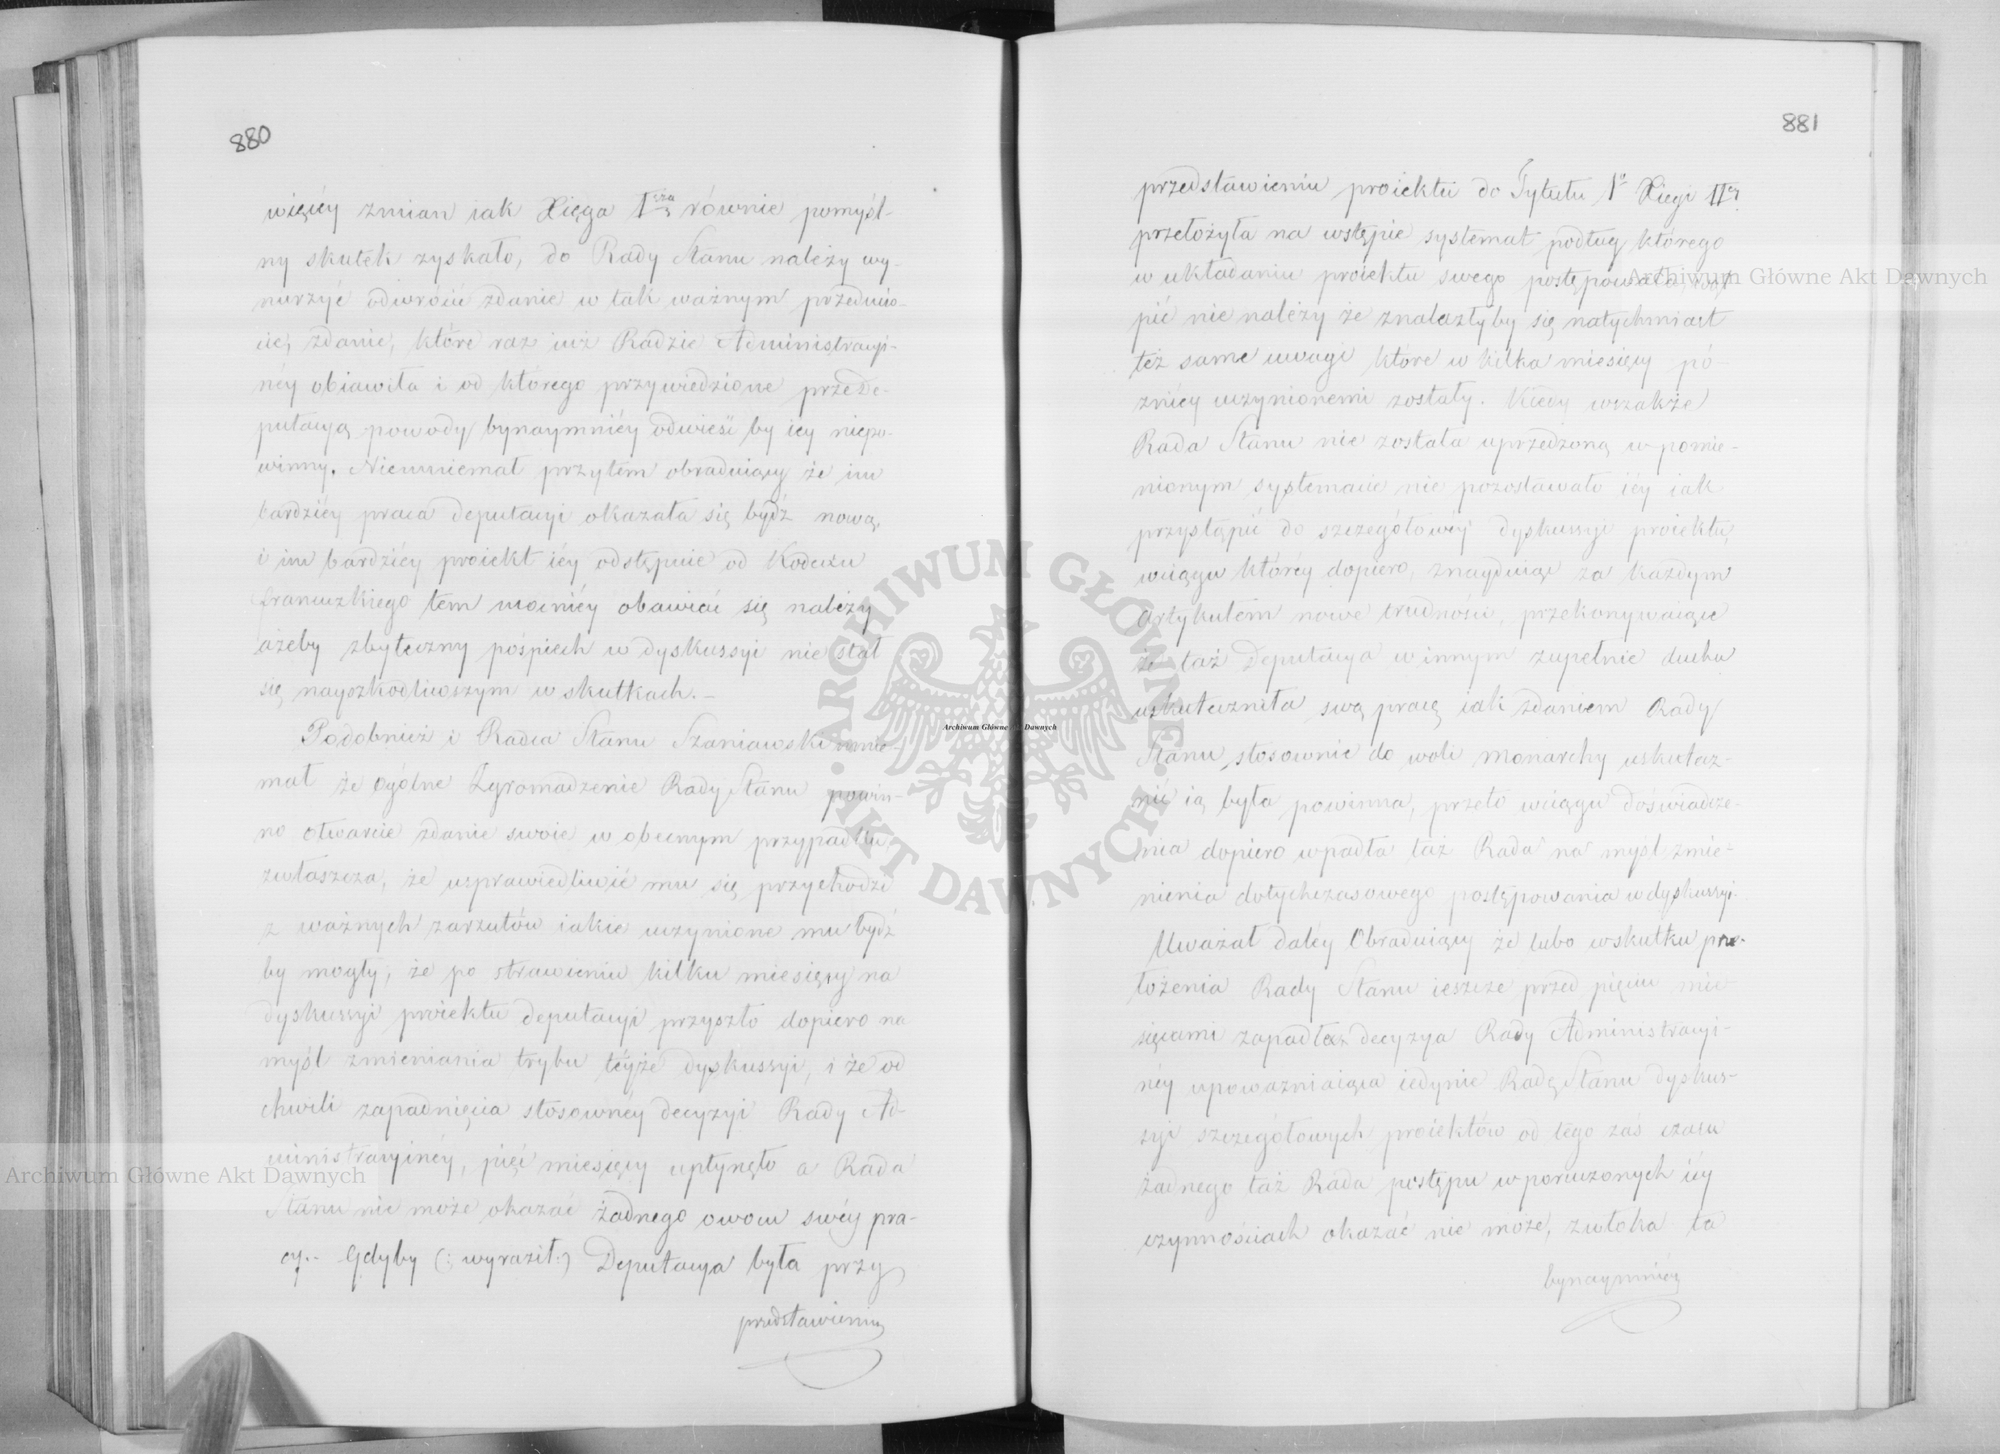 880
więcéy zmian iak Xięga I<sup>sza</sup> równie pomyśl-
ny skutek zyskało, do Rady Stanu należy wy-
nurzyć odwrócić zdanie w tak ważnym przedmio-
cie, zdanie, które raz iuż Radzie Administracyi-
néy obiawiła i od którego przywiedzione przez De-
putacyą powody bynaymniéy odwieść by iey niepo-
winny. Nieumiemał przytem obraduiący że im
bardziéy praca Deputacyi okazała się bydź nową,
i im bardziéy proiekt iéy odstępuie od Kodexu
francuzkiego tem mocniéy obawiać się należy
ażeby zbyteczny pośpiech w dyskussyi nie stał
się nayszkodliwszym w skutkach. –
Podobnież i Radca Stanu Szaniawski mnie-
mał że ogólne Zgromadzenie Rady Stanu powin-
no otwarcie zdanie swoie w obecnym przypadku,
zwłaszcza, że usprawiedliwić mu się przychodzi
z ważnych zarzutów iakie uczynione mu bydź
by mogły, że po strawieniu kilku miesięcy na
dyskussyi proiektu deputacyi przyszło dopiero na
myśl zmieniania trybu téyże dyskussyi, i że od
chwili zapadnięcia stosownéy decyzyi Rady Ad-
ministracyinéy, pięć miesięcy upłynęło a Rada
Stanu nie może okazać żadnego owocu swéy pra-
cy. – Gdyby (: wyraził :) Deputacya była przy
przedstawieniu
881
przedstawieniu proiektu do Tytułu I° Xięgi II<sup>éy</sup>
przełożyła na wstępie systemat podług którego
w układaniu proiektu swego postępowała, wąt-
pić nie należy że znalazłyby się natychmiast
też same uwagi które w kilka miesięcy pó-
źniéy uczynionemi zostały. Kiedy wszakże
Rada Stanu nie została uprzedzoną w pomie-
nionym systemacie nie pozostawało iéy iak
przystąpić do szczegółowéy dyskussyi proiektu,
wciągu któréy dopiero, znayduiąc za każdym
Artykułem nowe trudności, przekonywaiące
że taż Deputacya w innym zupełnie duchu
uskuteczniła swą pracę iak zdaniem Rady
Stanu, stosownie do woli Monarchy uskutecz-
nić ią była powinna, przeto wciągu doświadcze-
nia dopiero wpadła taż Rada na myśl zmie-
nienia dotychczasowego postępowania w dyskussyi.
Uważał daléy Obraduiący że lubo wskutku prze-
łożenia Rady Stanu ieszcze przed pięciu mie-
sięcami zapadła decyzya Rady Administracyi-
néy upoważniaiąca iedynie Radę Stanu dyskus-
syi szczegółowych proiektów od tego zaś czasu
żadnego taż Rada postępu w poruczonych iéy
czynnościach okazać nie może, zwłoka ta
bynaymniéy
Archiwum Główne Akt Dawnych
Archiwum Główne Akt Dawnych
Archiwum Główne Akt Dawnych
ARCHIWUM GŁÓWNE AKT DAWNYCH